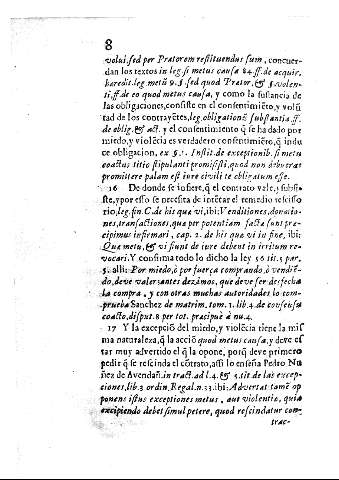 8
volui. sed per Pratorem restituendus sum, concuer-
dan los textos in leg. si metus causa 84. ff. de acquir.
haredit. leg. metũ 9. §. sed quod Prator. & §. volen-
ti. ff. de eo quod metus causa, y como la sustancia de
las obligaciones, consiste en el consentimiẽto, y volũ
tad de los contrayẽtes, leg. obligationũ substantia ff.
de oblig. & act. y el consentimiento q̃ se ha dado por
miedo, y violẽcia es verdadero consentimiẽto, q̃ indu
ce obligacion, ex §. 1. Instit. de exceptionib. si metu
coactus sitio stipulanti promisisti, quod non debueras
promittere palam est iure civili te obligatum esse.
16 De donde se infiere, q̃ el contrato vale, y subsis-
te, y por esso se necesita de intẽtar el remedio rescisso
rio, leg. fin. C. de his que vi, ibi: Venditiones, donatio-
nes, transactiones, que per potentiam facta sunt præ-
cipimus infirmari, cap. 2. de his que vi in fine, ibi:
Que metu, & vi fiunt de iure debent in irritum re-
vocari. Y confirma todo lo dicho la ley 56. tit. 5. par.
5. alli: Por miedo, ò por fuerça comprando, ò vendiẽ-
do, deve valer, antes dezimos, que deve ser desfecha
la compra. y con otras muchas autoridades lo com-
prueba Sanchez de matrim. tom. 1. lib. 4. de consensu
coacto, disput. 8. per tot. præcipuè à nu. 4.
17 Y la excepciõ del miedo, y violẽcia tiene la mis
ma naturaleza, q̃ la acciõ quod metus causa, y deve es
tar muy advertido el q̃ la opone, porq̃ deve primero
pedir q̃ se rescinda el cõtrato, assi lo enseña Pedro Nu
ñez de Avendañ. in tract. ad l. 4. & 5. tit. de las excep-
ciones, lib. 3. ordin. Regal. n. 33. ibi: Adversat tamẽ op
ponens istas exceptiones metus, aut violentiæ, quia
excipiendo debet simul petere, quod rescindatur con-
trac-